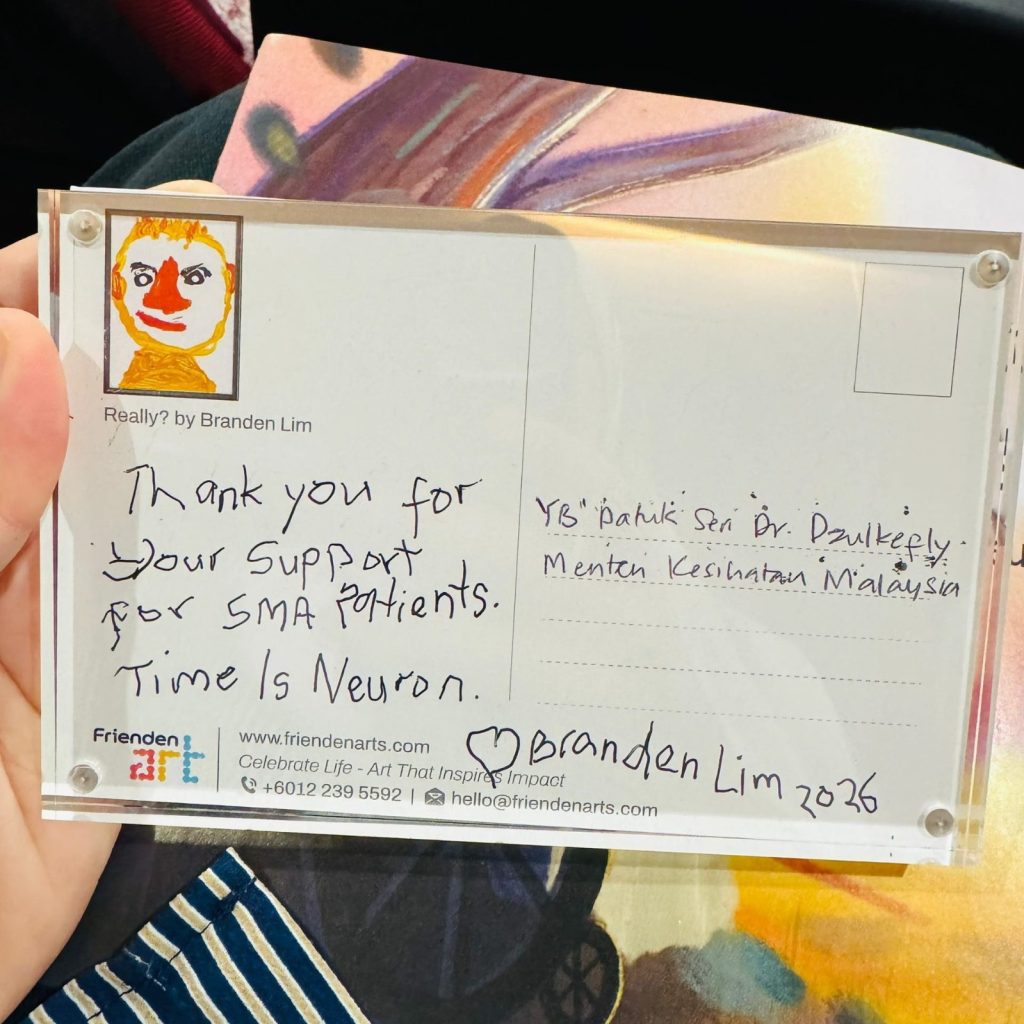 Really? by Branden Lim
Thank you for
your support
for SMA Patients.
Time Is Neuron.
YB" Datuk Seri Dr. Dzulkefly.
Menteri Kesihatan Malaysia
♡ Branden Lim 2026
Frienden
art
www.friendenarts.com
Celebrate Life - Art That Inspires Impact
+6012 239 5592 | hello@friendenarts.com